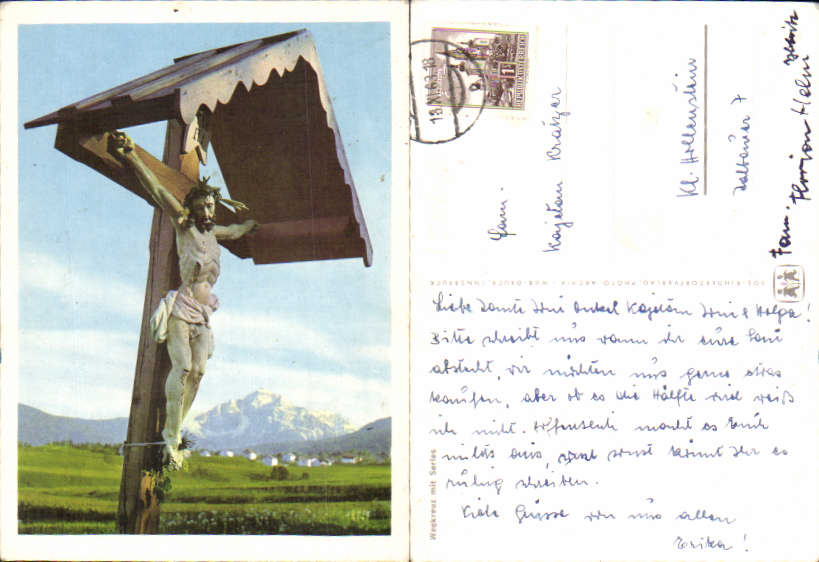 REPUBLIK ÖSTERREICH
Fam.
Kajetan Kratzer
Kl. Hollenstein
7
Fam. Florian Helm
SOS-KINDERDORFVERLAG PHOTO-ARCHIV INNSBRUCK
Wegkreuz mit Serles
Liebe Tante Irmi Onkel Kajetan Irmi & Helga!
Bitte schreibt uns wann ihr eure Sau
abstecht, wir möchten uns gerne etwas
kaufen, aber ob es die Hälfte wird weiß
ich nicht. Hoffentlich macht es Euch
nichts aus, sonst könnt Ihr es
ruhig schreiben.
Viele Grüsse von uns allen
Erika!